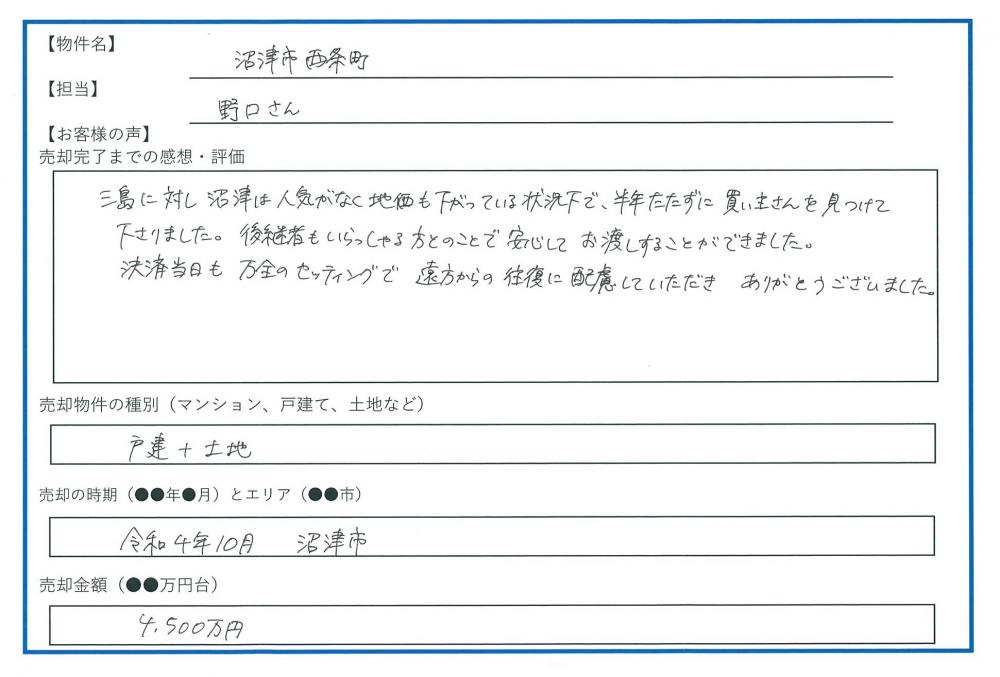 【物件名】
沼津市西条町
【担当】
野口さん
【お客様の声】
売却完了までの感想・評価
三島に対し沼津は人気がなく地価も下がっている状況下で、半年たたずに買い主さんを見つけて
下さりました。後継者もいらっしゃる方とのことで安心してお渡しすることができました。
決済当日も万全のセッティングで遠方からの往復に配慮していただきありがとうございました。
売却物件の種別（マンション、戸建て、土地など）
戸建＋土地
売却の時期（●●年●月）とエリア（●●市）
令和4年10月 沼津市
売却金額（●●万円台）
4,500万円